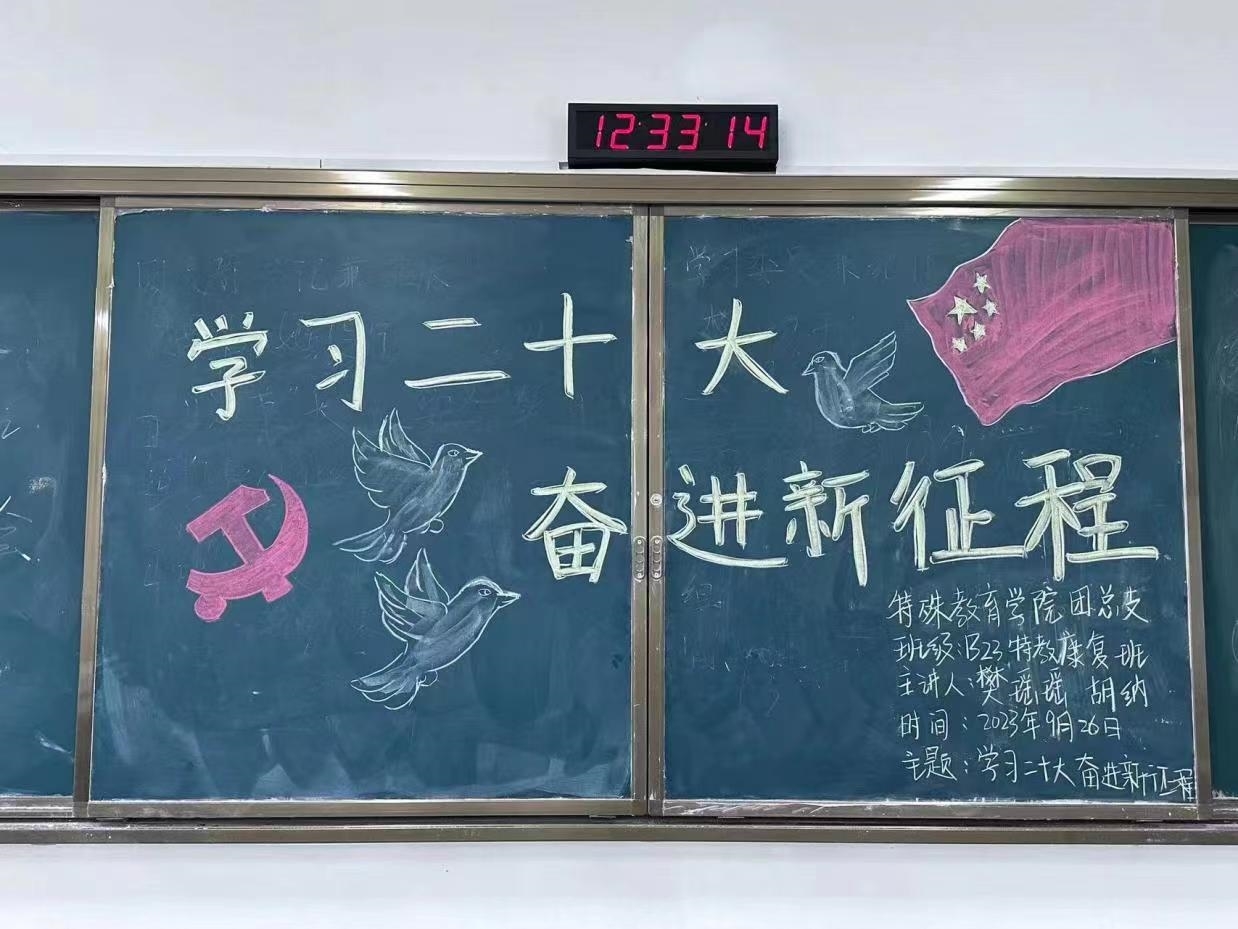 12:33:14
学习二十大
奋进新征程
特殊教育学院团总支
班级:B23特教康复班
主讲人:樊瑶瑶 胡纳
时间:2023年9月26日
主题:学习二十大奋进新征程